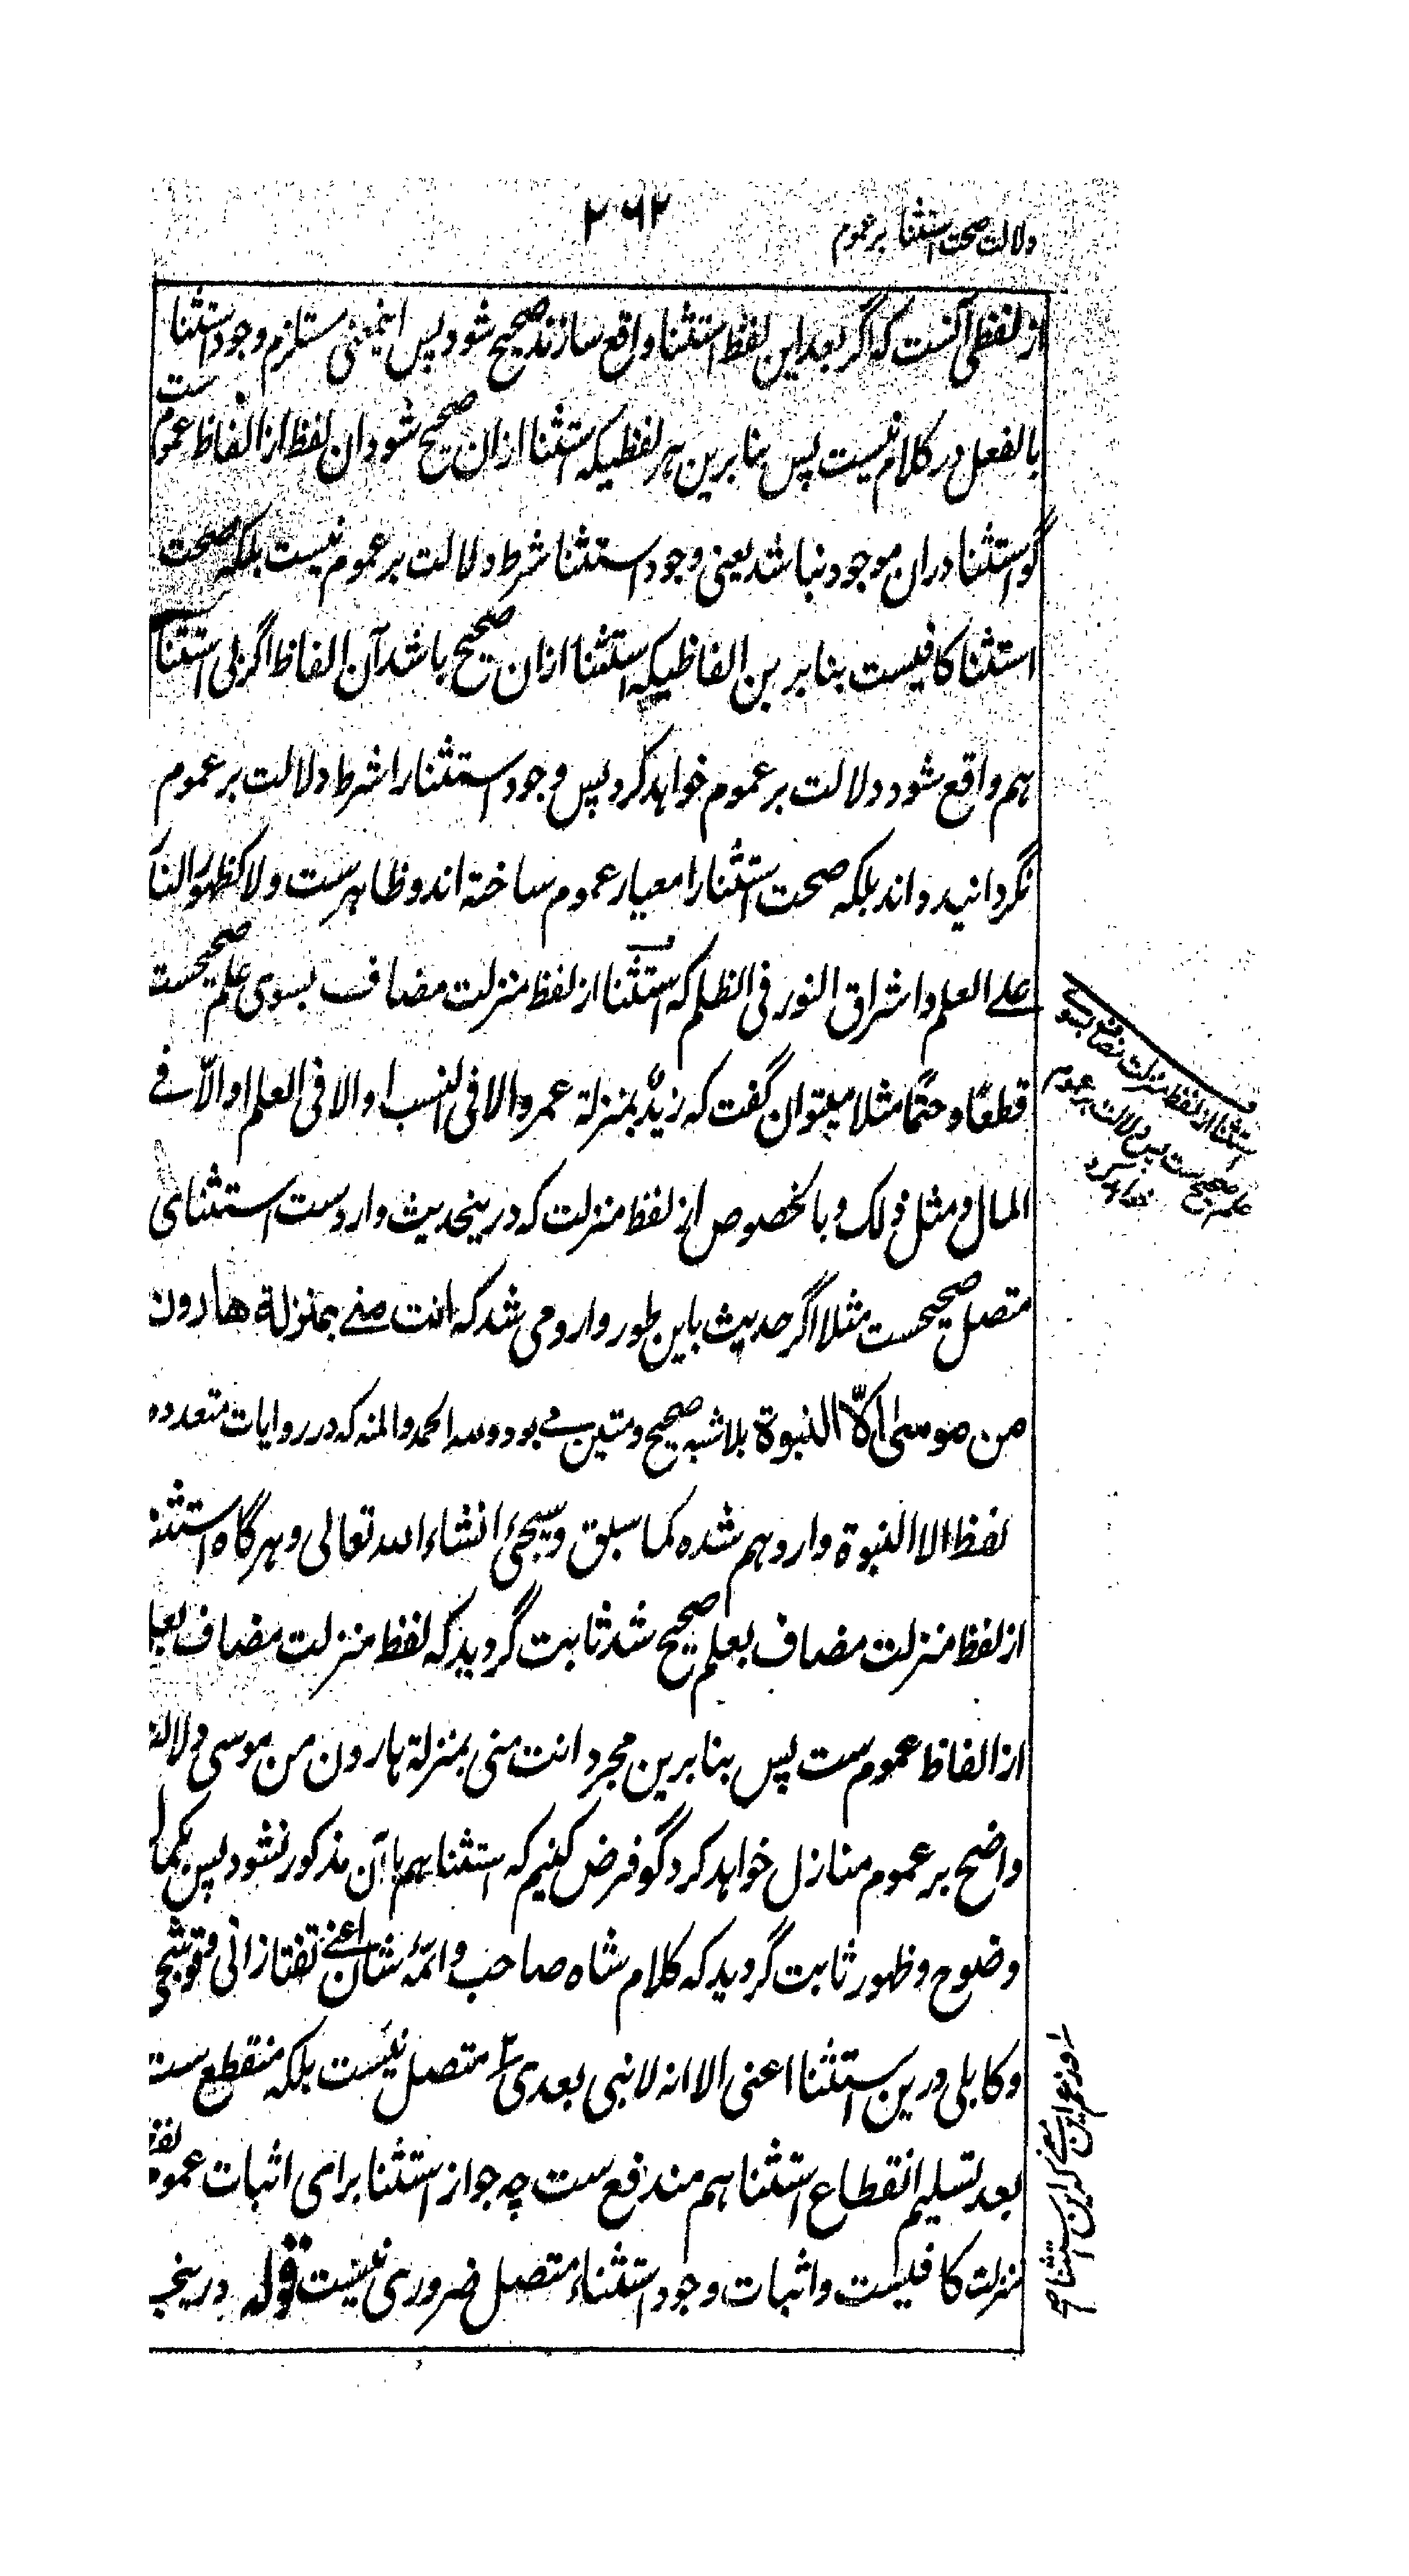 دلالت صحت استثنا بر عموم
۲۶۲
از لفظی آنست که اگر بعد این لفظ استثنا واقع سازند صحیح شود پس اینمعنی مستلزم وجود استثنا
بالفعل در کلام نیست پس بنابرین هر لفظیکه استثنا ازان صحیح شود ان لفظ از الفاظ عموم ست
گو استثنا دران موجود نباشد یعنی وجود استثنا شرط دلالت بر عموم نیست بلکه صحت
استثنا کافیست بنابرین الفاظیکه استثنا ازان صحیح باشد آن الفاظ اگر بی استثنا
هم واقع شود دلالت بر عموم خواهد کرد پس وجود استثنا را شرط دلالت بر عموم
نگردانیده اند بلکه صحت استثنا را معیار عموم ساخته اند و ظاهرست ولا کظهور النار
علی العلم و اشراق النور فی الظلم که استثنا از لفظ منزلت مضاف بسوی علم صحیحست
قطعًا و حتمًا مثلا میتوان گفت که زیدٌ بمنزلة عمرو الا فی النسب او الا فی العلم او الّا فی
المال و مثل ذلک و بالخصوص از لفظ منزلت که درینحدیث واردست استثنای
متصل صحیحست مثلا اگر حدیث باین طور وارد می شد که انت منی بمنزلة هارون
من موسی الّا النبوة بلا شبه صحیح و متین می بود و لله الحمد والمنه که در روایات متعدده
لفظ الا النبوة وارد هم شده کما سبق و سیجیٔ انشاء الله تعالی و هرگاه استثنا
از لفظ منزلت مضاف بعلم صحیح شد ثابت گردید که لفظ منزلت مضاف بعلم
از الفاظ عموم ست پس بنابرین مجرد انت منی بمنزلة هارون من موسی دلالت
واضح بر عموم منازل خواهد کرد گو فرض کنیم که استثنا هم با آن مذکور نشود پس بکمال
وضوح و ظهور ثابت گردید که کلام شاه صاحب و ائمّهٔ شان اعنی تفتازانی و قوشجی
و کابلی درین استثنا اعنی الا انه لا نبی بعدی متصل نیست بلکه منقطع ست
بعد تسلیم انقطاع استثنا هم مندفع ست چه جواز استثنا برای اثبات عموم لفظ
منزلت کافیست و اثبات وجود استثناء متصل ضروری نیست قوله درینجا
استثنا از لفظ منزلت مضاف بسوی
علم صحیح ست پس دلالت بر عموم
خواهد کرد